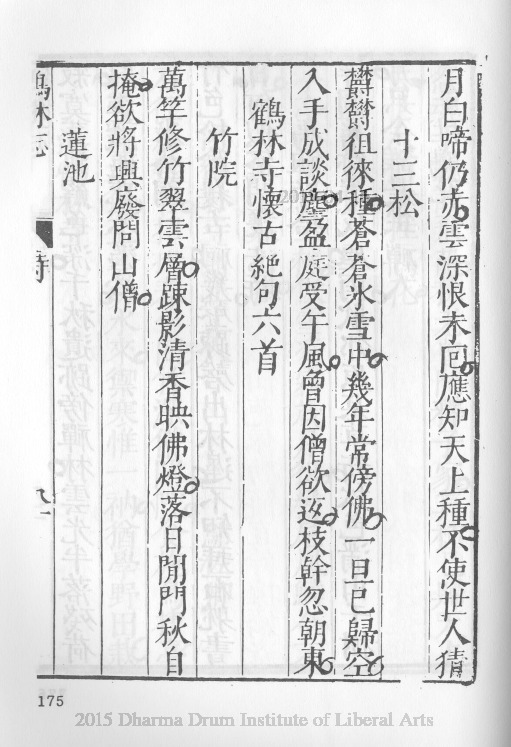 月白啼仍赤雲深恨未囘應知天上種不使世人猜
十三松
欝欝徂徠種蒼蒼氷雪中幾年常傍佛一旦已歸空
入手成談麈盈庭受午風曾因僧欲返枝幹忽朝東
鶴林寺懷古絶句六首
竹院
萬竿修竹翠雲層踈影清香映佛燈落日閒門秋自
掩欲將興廢問山僧
蓮池
鶴林志
詩
175
2015 Dharma Drum Institute of Liberal Arts